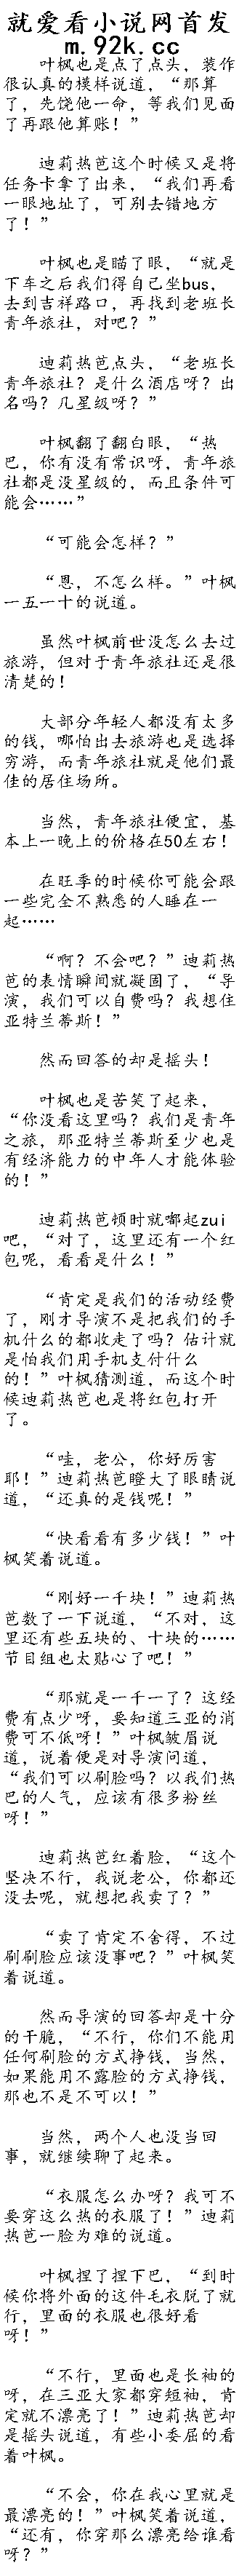 就爱看小说网首发
m.92k.cc
叶枫也是点了点头，装作
很认真的模样说道，“那算
了，先饶他一命，等我们见面
了再跟他算账！”
迪莉热芭这个时候又是将
任务卡拿了出来，“我们再看
一眼地址了，可别去错地方
了！”
叶枫也是瞄了眼，“就是
下车之后我们得自己坐bus，
去到吉祥路口，再找到老班长
青年旅社，对吧？”
迪莉热芭点头，“老班长
青年旅社？是什么酒店呀？出
名吗？几星级呀？”
叶枫翻了翻白眼，“热
巴，你有没有常识呀，青年旅
社都是没星级的，而且条件可
能会……”
“可能会怎样？”
“恩，不怎么样。”叶枫
一五一十的说道。
虽然叶枫前世没怎么去过
旅游，但对于青年旅社还是很
清楚的！
大部分年轻人都没有太多
的钱，哪怕出去旅游也是选择
穷游，而青年旅社就是他们最
佳的居住场所。
当然，青年旅社便宜，基
本上一晚上的价格在50左右！
在旺季的时候你可能会跟
一些完全不熟悉的人睡在一
起……
“啊？不会吧？”迪莉热
芭的表情瞬间就凝固了，“导
演，我们可以自费吗？我想住
亚特兰蒂斯！”
然而回答的却是摇头！
叶枫也是苦笑了起来，
“你没看这里吗？我们是青年
之旅，那亚特兰蒂斯至少也是
有经济能力的中年人才能体验
的！”
迪莉热芭顿时就嘟起zui
吧，“对了，这里还有一个红
包呢，看看是什么！”
“肯定是我们的活动经费
了，刚才导演不是把我们的手
机什么的都收走了吗？估计就
是怕我们用手机支付什么
的！”叶枫猜测道，而这个时
候迪莉热芭也是将红包打开
了。
“哇，老公，你好厉害
耶！”迪莉热芭瞪大了眼睛说
道，“还真的是钱呢！”
“快看看有多少钱！”叶
枫笑着说道。
“刚好一千块！”迪莉热
芭数了一下说道，“不对，这
里还有些五块的、十块的……
节目组也太贴心了吧！”
“那就是一千一了？这经
费有点少呀，要知道三亚的消
费可不低呀！”叶枫皱眉说
道，说着便是对导演问道，
“我们可以刷脸吗？以我们热
巴的人气，应该有很多粉丝
呀！”
迪莉热芭红着脸，“这个
坚决不行，我说老公，你都还
没去呢，就想把我卖了？”
“卖了肯定不舍得，不过
刷刷脸应该没事吧？”叶枫笑
着说道。
然而导演的回答却是十分
的干脆，“不行，你们不能用
任何刷脸的方式挣钱，当然，
如果能用不露脸的方式挣钱，
那也不是不可以！”
当然，两个人也没当回
事，就继续聊了起来。
“衣服怎么办呀？我可不
要穿这么热的衣服了！”迪莉
热芭一脸为难的说道。
叶枫捏了捏下巴，“到时
候你将外面的这件毛衣脱了就
行，里面的衣服也很好看
呀！”
“不行，里面也是长袖的
呀，在三亚大家都穿短袖，肯
定就不漂亮了！”迪莉热芭却
是摇头说道，有些小委屈的看
着叶枫。
“不会，你在我心里就是
最漂亮的！”叶枫笑着说道，
“还有，你穿那么漂亮给谁看
呀？”